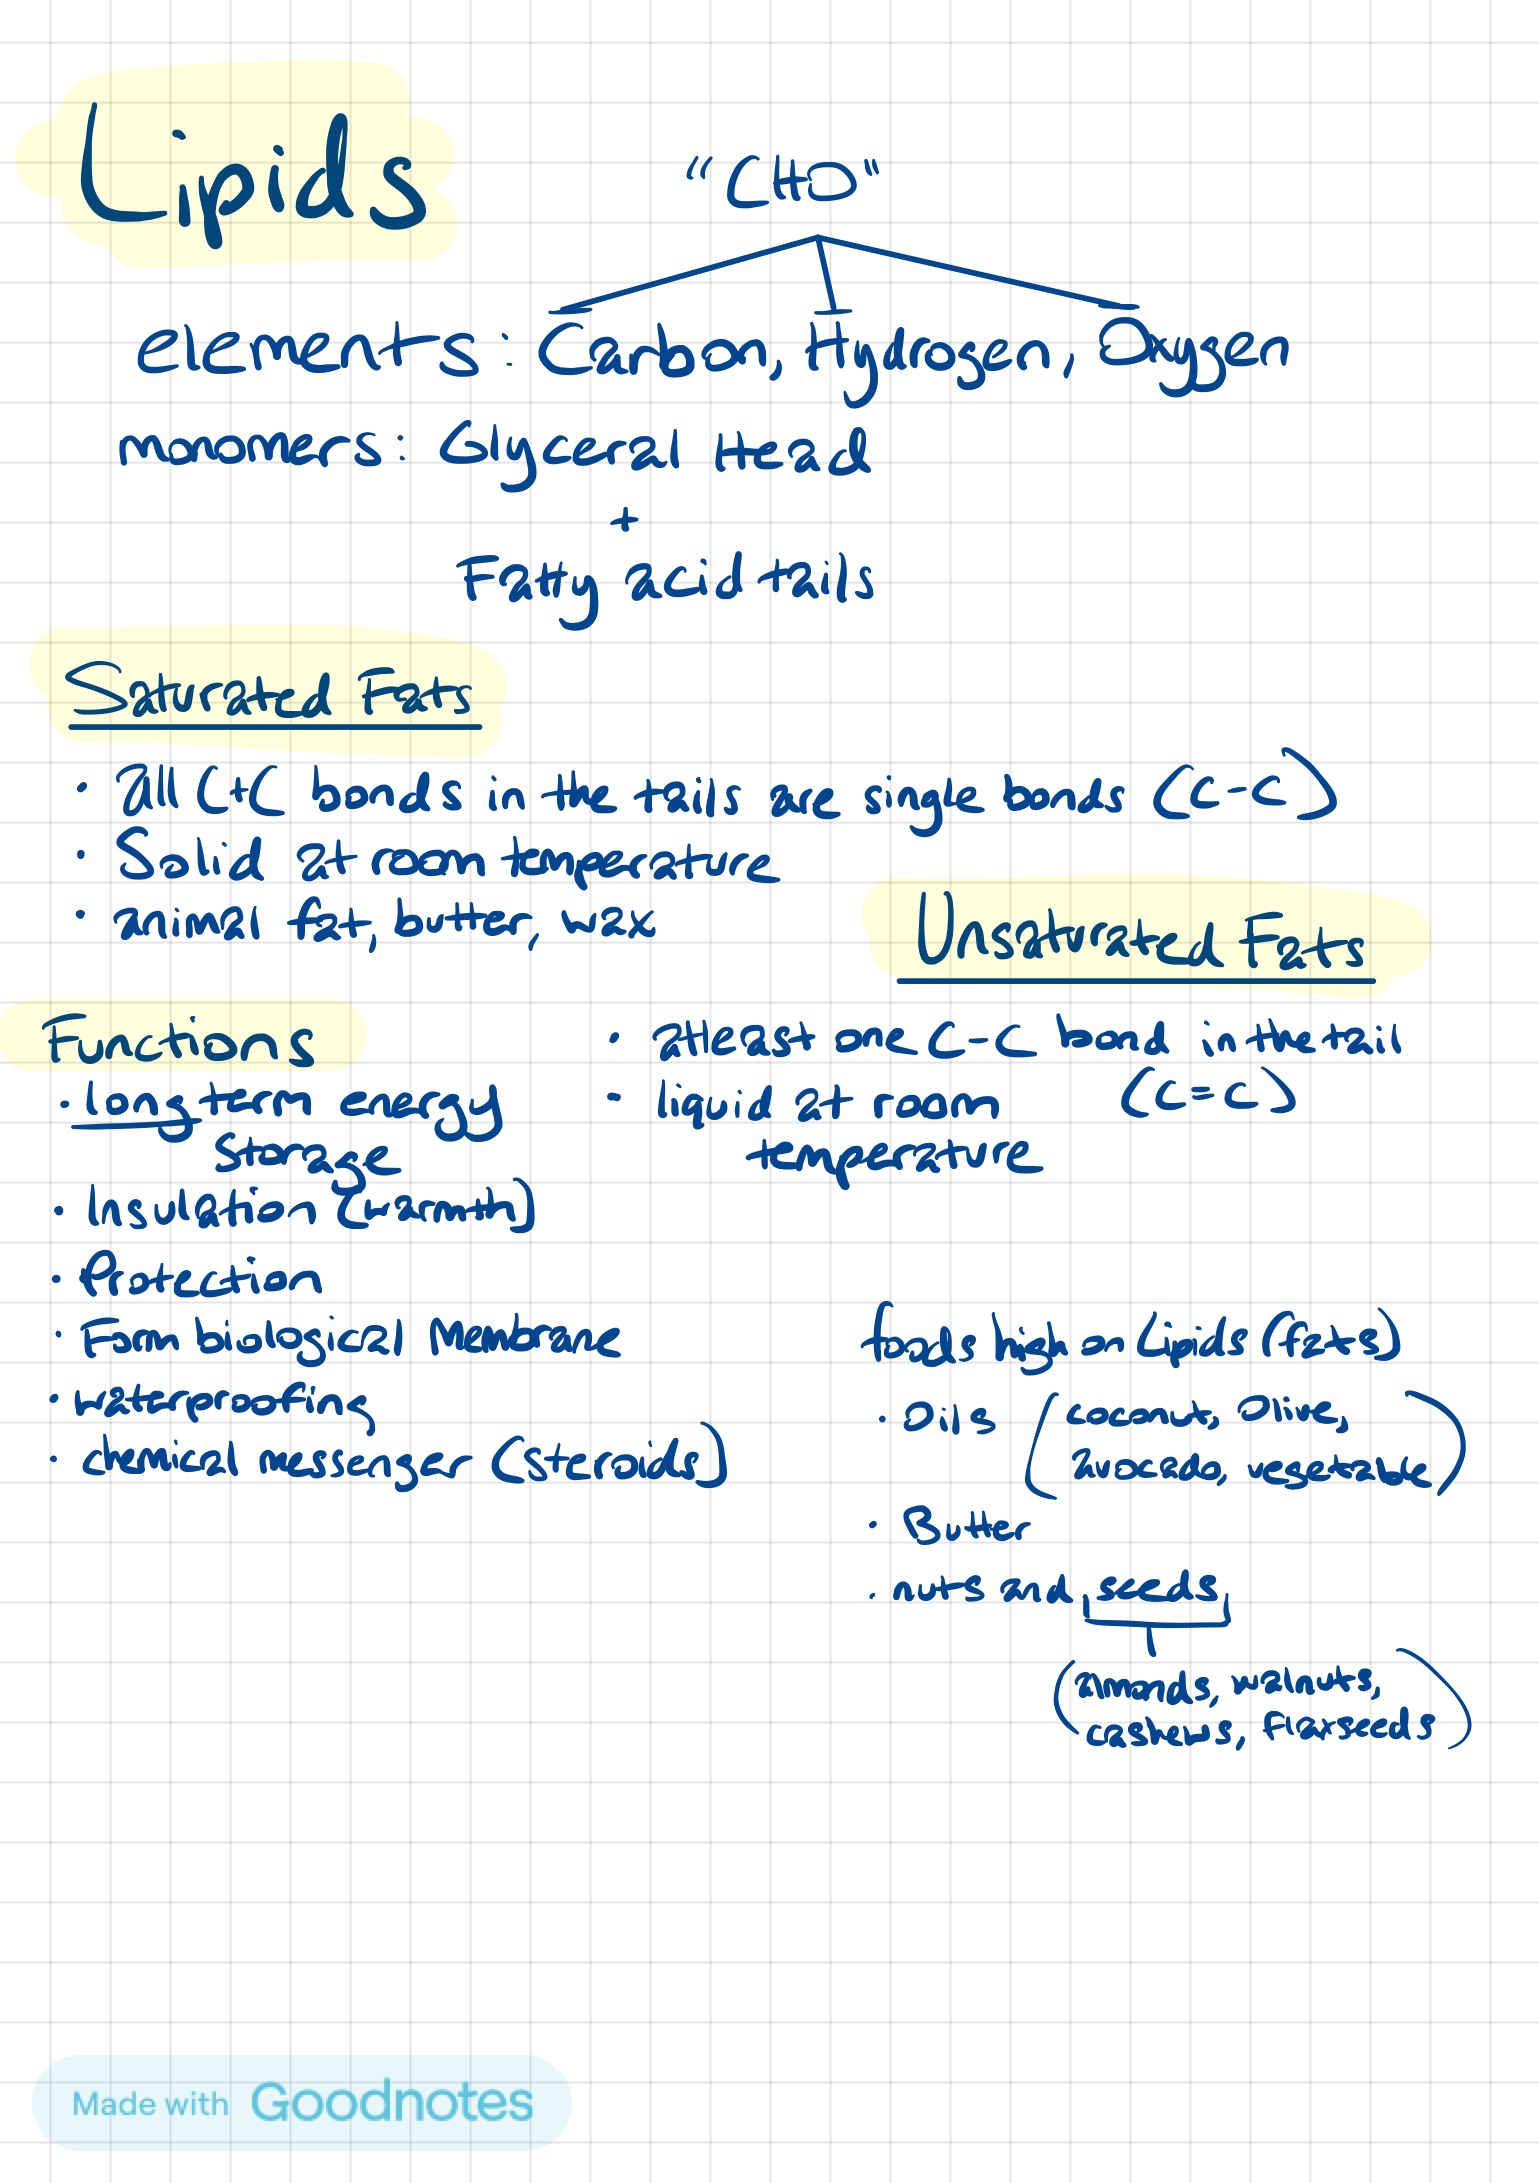 Lipids
"CHO"
elements: Carbon, Hydrogen, Oxygen
monomers: Glyceral Head
+
Fatty acid tails
Saturated Fats
· all C+C bonds in the tails are single bonds (C-C)
· Solid at room temperature
· animal fat, butter, wax
Unsaturated Fats
· atleast one C-C bond in the tail
(C=C)
· liquid at room
temperature
Functions
· long term energy
storage
· Insulation (warmth)
· Protection
· Form biological Membrane
· waterproofing
· chemical messenger (steroids)
foods high on Lipids (fats)
· Oils (coconut, Olive,
avocado, vegetable)
· Butter
· nuts and seeds
(almonds, walnuts,
cashews, Flaxseeds)
Made with Goodnotes